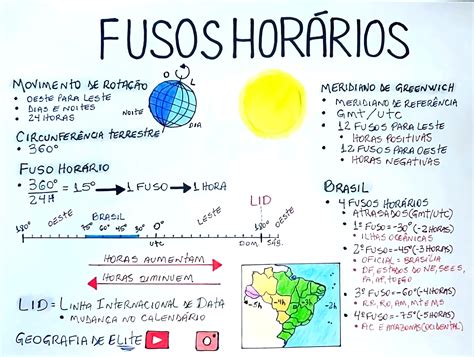 FUSOS HORÁRIOS
MOVIMENTO DE ROTAÇÃO
• OESTE PARA LESTE
• DIAS E NOITES
• 24 HORAS
O
L
NOITE
DIA
CIRCUNFERÊNCIA TERRESTRE
• 360°
FUSO HORÁRIO
• 360° = 15° → 1 FUSO → 1 HORA
24H
MERIDIANO DE GREENWICH
• MERIDIANO DE REFERÊNCIA
• GMT/UTC
• 12 FUSOS PARA LESTE
HORAS POSITIVAS
• 12 FUSOS PARA OESTE
HORAS NEGATIVAS
LID
180° OESTE BRASIL 0° LESTE 180° OESTE
75° 60° 45° 30°
UTC DOM. SÁB.
HORAS AUMENTAM
HORAS DIMINUEM
LID = LINHA INTERNACIONAL DE DATA
• MUDANÇA NO CALENDÁRIO
GEOGRAFIA DE ELITE
-5h -4h -3h -2h
BRASIL
• 4 FUSOS HORÁRIOS
• ATRASADOS (GMT/UTC)
• 1º FUSO = -30° (-2 HORAS)
• ILHAS OCEÂNICAS
• 2º FUSO = -45° (-3 HORAS)
• OFICIAL = BRASÍLIA
• DF, ESTADOS DO NE, SE E S,
PA, AP, TO, GO
• 3º FUSO = -60° (-4 HORAS)
• RR, RO, AM, MT E MS
• 4º FUSO = -75° (-5 HORAS)
• AC E AMAZONAS (OCIDENTAL)